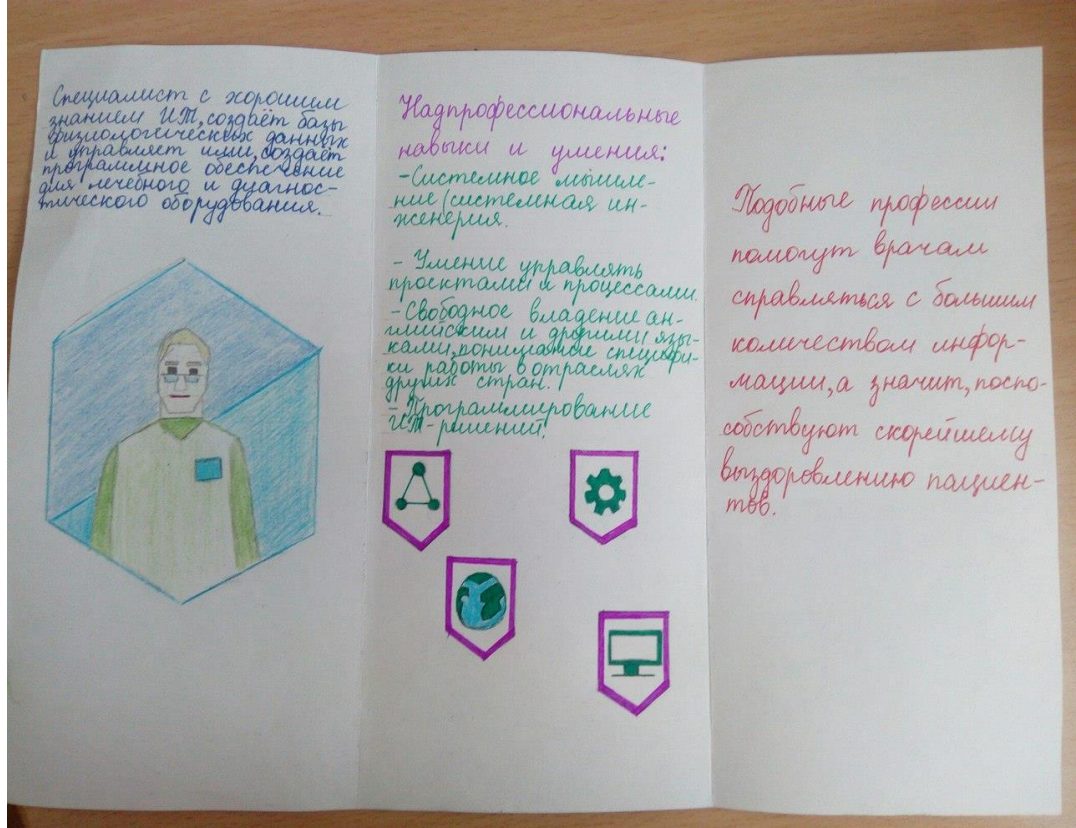 Специалист с хорошим
знанием ИТ, создаёт базы
физиологических данных
и управляет ими, создаёт
программное обеспечение
для лечебного и диагнос-
тического оборудования.
Надпрофессиональные
навыки и умения:
-Системное мышле-
ние/системная ин-
женерия.
- Умение управлять
проектами и процессами.
-Свободное владение ан-
глийским и другими язы-
ками, понимание специфи-
ки работы в отраслях
других стран.
- Программирование
ИТ-решений.
Подобные профессии
помогут врачам
справляться с большим
количеством инфор-
мации, а значит, поспо-
собствуют скорейшему
выздоровлению пациен-
тов.